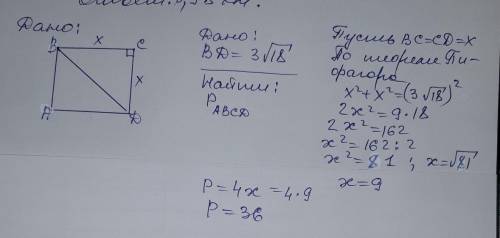 Дано:
B x C
x
A D
Дано:
BD = 3√18
Найти:
P ABCD
P = 4x = 4·9
P = 36
Пусть BC=CD=x
По теореме Пи-
фагора
x²+x²=(3√18)²
2x²=9·18
2x²=162
x²=162:2
x²=81 ; x=√81
x=9